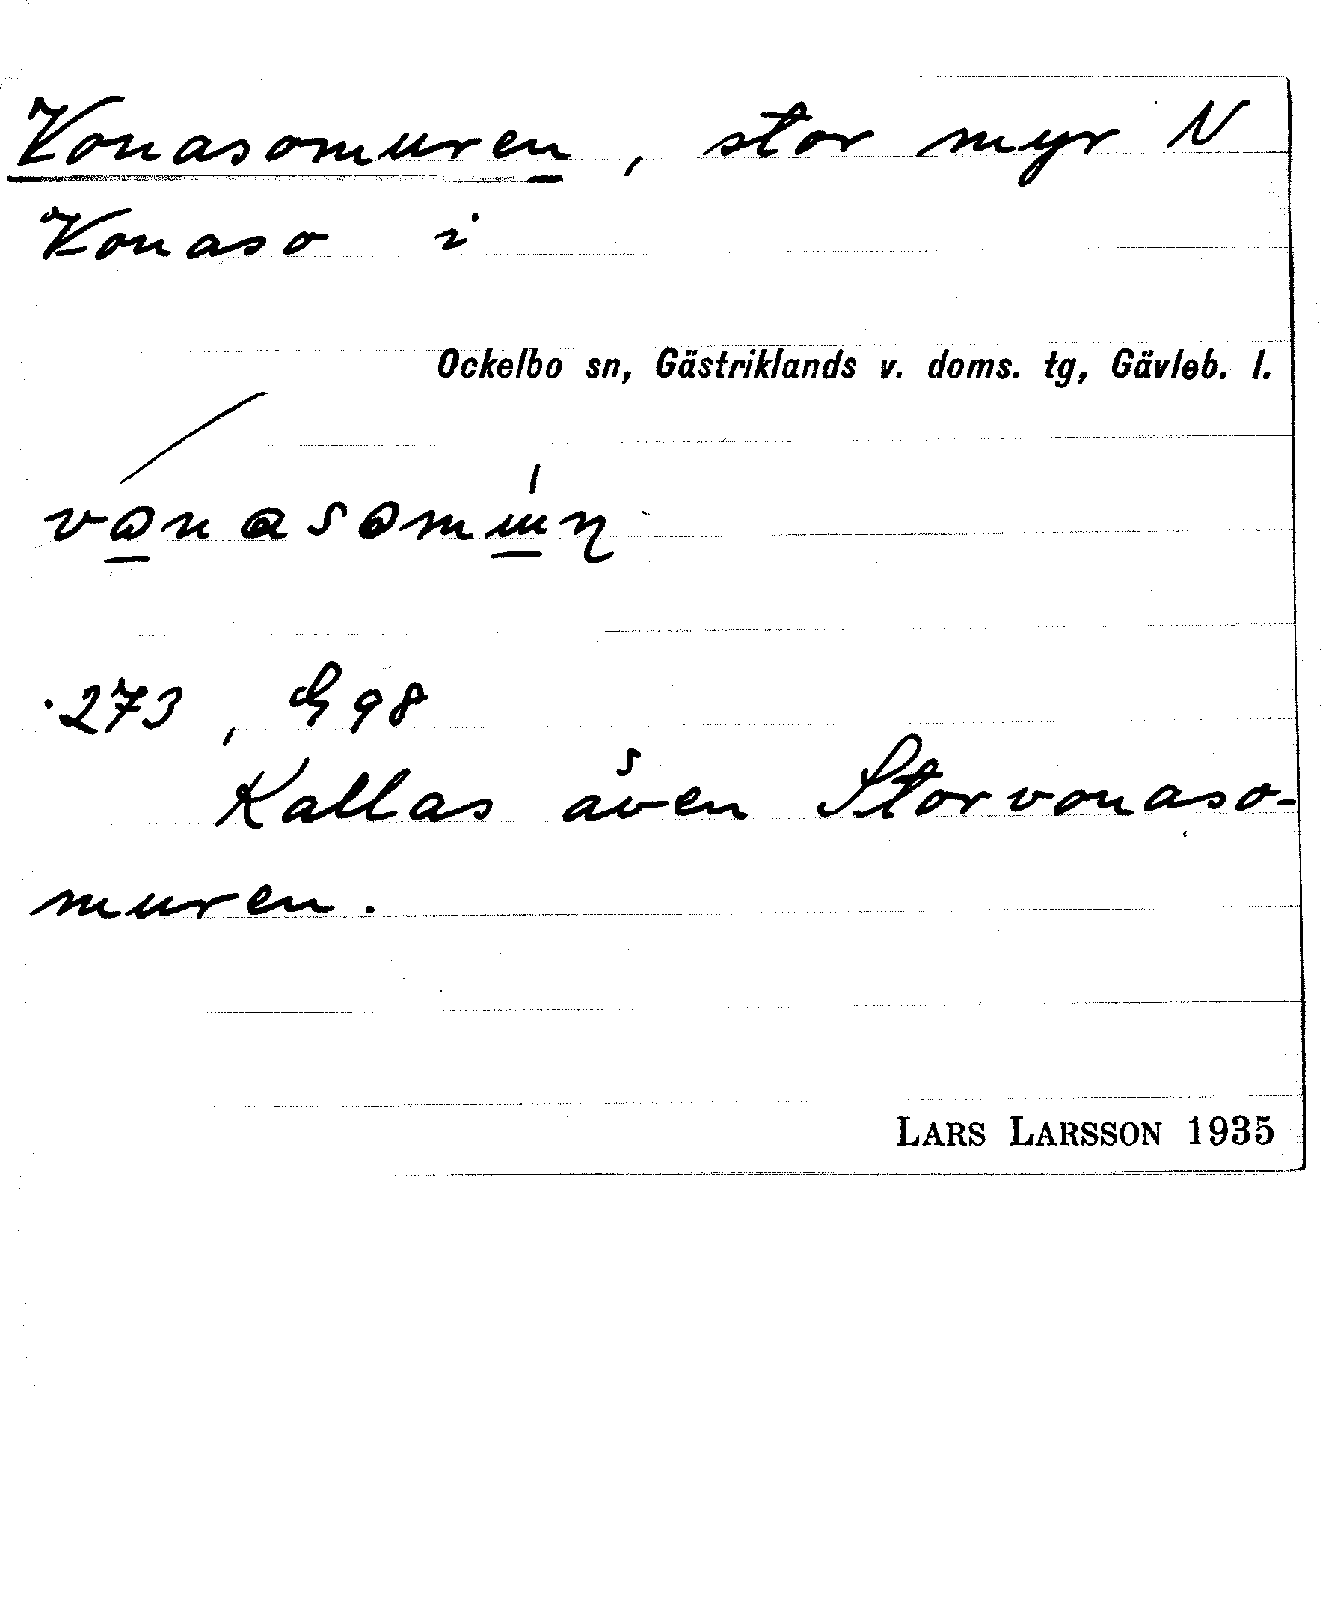 Vonasomuren, stor myr N
Vonaso i
Ockelbo sn, Gästriklands v. doms. tg, Gävleb. l.
273, G 98
Kallas även Storvonaso-
muren.
LARS LARSSON 1935